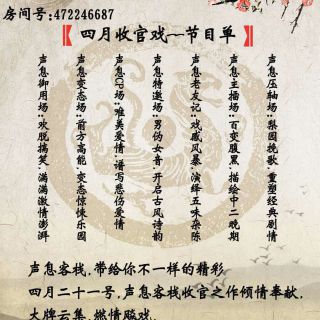 房间号:472246687
【四月收官戏—节目单】
声息御用场:欢脱搞笑,满满激情澎湃
声息变态场:前方高能,变态惊悚乐园
声息CP场:唯美爱情,谱写悲伤爱情
声息特邀场:男伪女音,开启古风诗韵
声息老友记:戏感风暴,演绎五味杂陈
声息主播场:百变腹黑,描绘中二晚期
声息压轴场:梨园挽歌,重塑经典剧情
声息客栈,带给你不一样的精彩
四月二十一号,声息客栈收官之作倾情奉献,
大牌云集,燃情飚戏.